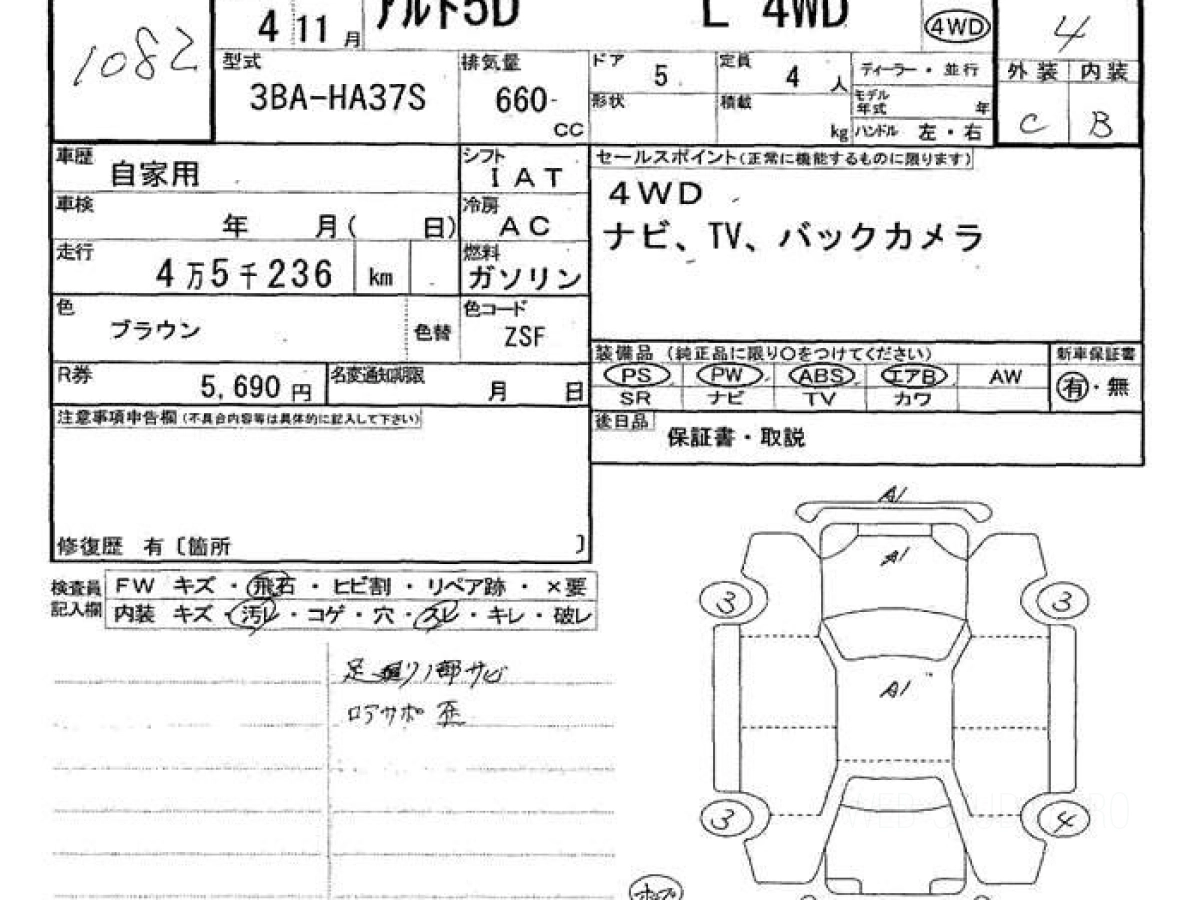 1082
4 11 月
アルト5D L 4WD
4WD
4
型式
3BA-HA37S
排気量
660
CC
ドア
5
定員
4 人
形状
積載
kg
ディーラー・並行
モデル年式 年
ハンドル 左・右
外装 内装
C B
車歴
自家用
シフト
I A T
車検
年 月( 日)
冷房
AC
走行
4万5千236 km
燃料
ガソリン
色
ブラウン
色替
色コード
ZSF
R券
5,690 円
名変通知期限
月 日
セールスポイント(正常に機能するものに限ります)
4WD
ナビ、TV、バックカメラ
装備品 (純正品に限り〇をつけてください)
PS PW ABS エアB AW
SR ナビ TV カワ
新車保証書
有・無
後日品
保証書・取説
注意事項申告欄(不具合内容等は具体的に記入して下さい)
修復歴 有〔箇所 〕
検査員記入欄
FW キズ・飛石・ヒビ割・リペア跡・×要
内装 キズ・汚レ・コゲ・穴・スレ・キレ・破レ
足廻リ1部サビ
ロアサポ 歪
A1
A1
3 3
A1
3 4